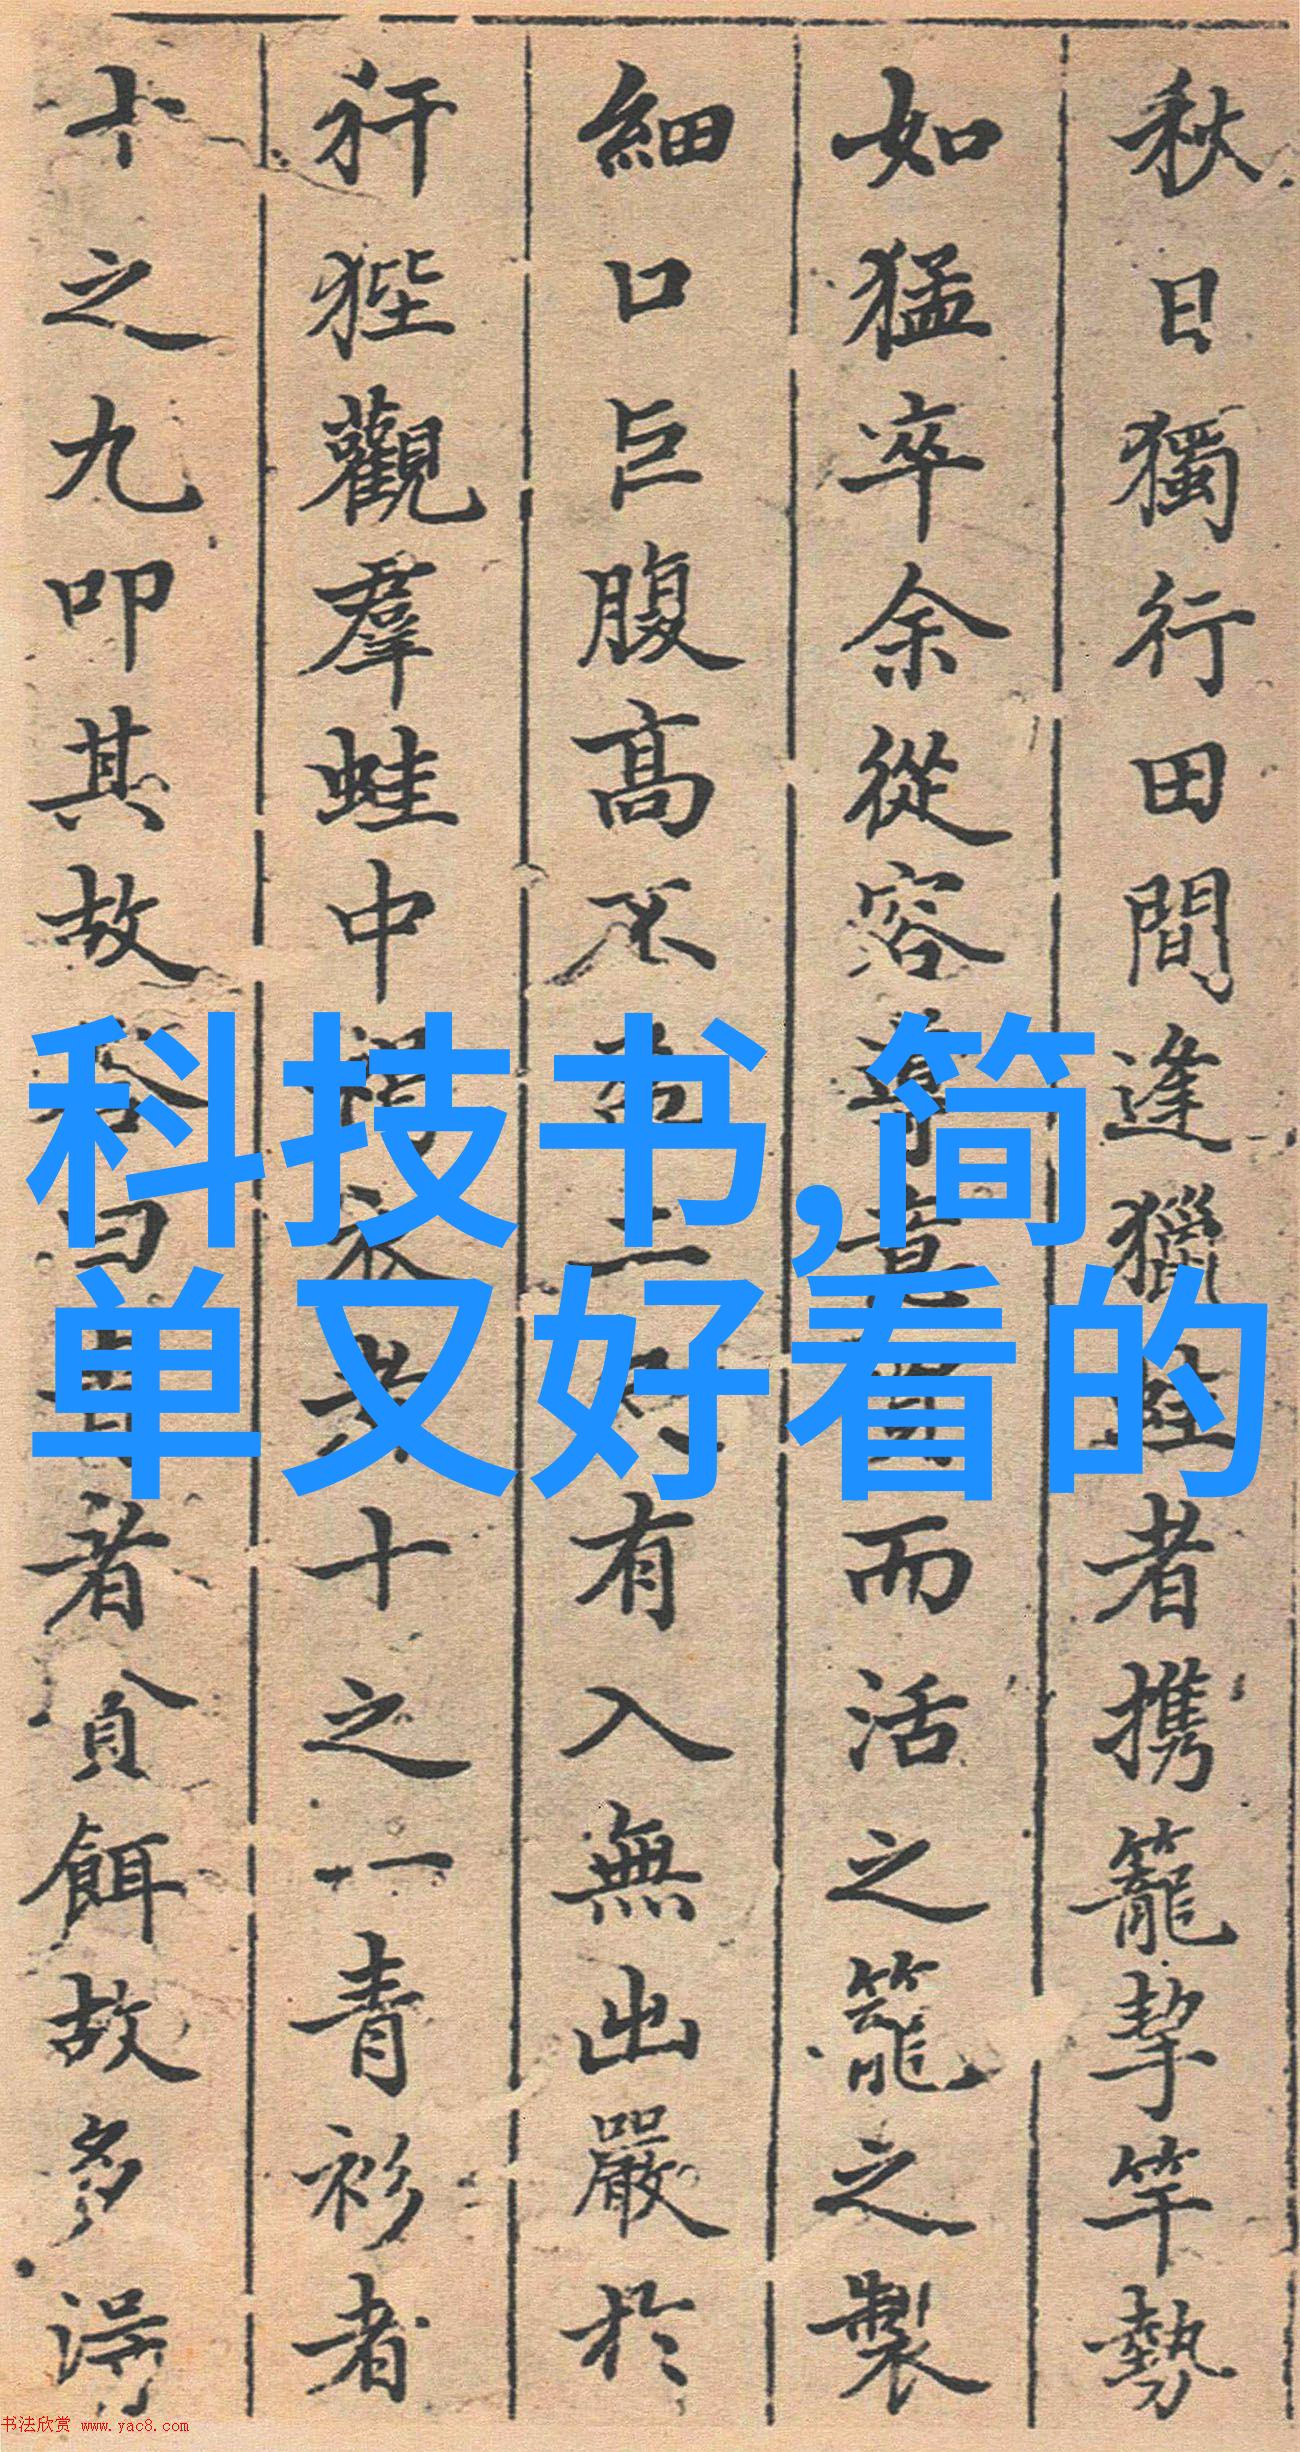 秋日獨行田間逢獵蛙者携籠挈竿勢
如猛卒余從容而活之籠之製
細口巨腹高不有入無出嚴於
犴狴觀羣蛙中十之一青衫者
十之九叩其故者貪餌故多得
科技书,简
单又好看的
书法欣赏 www.yac8.com